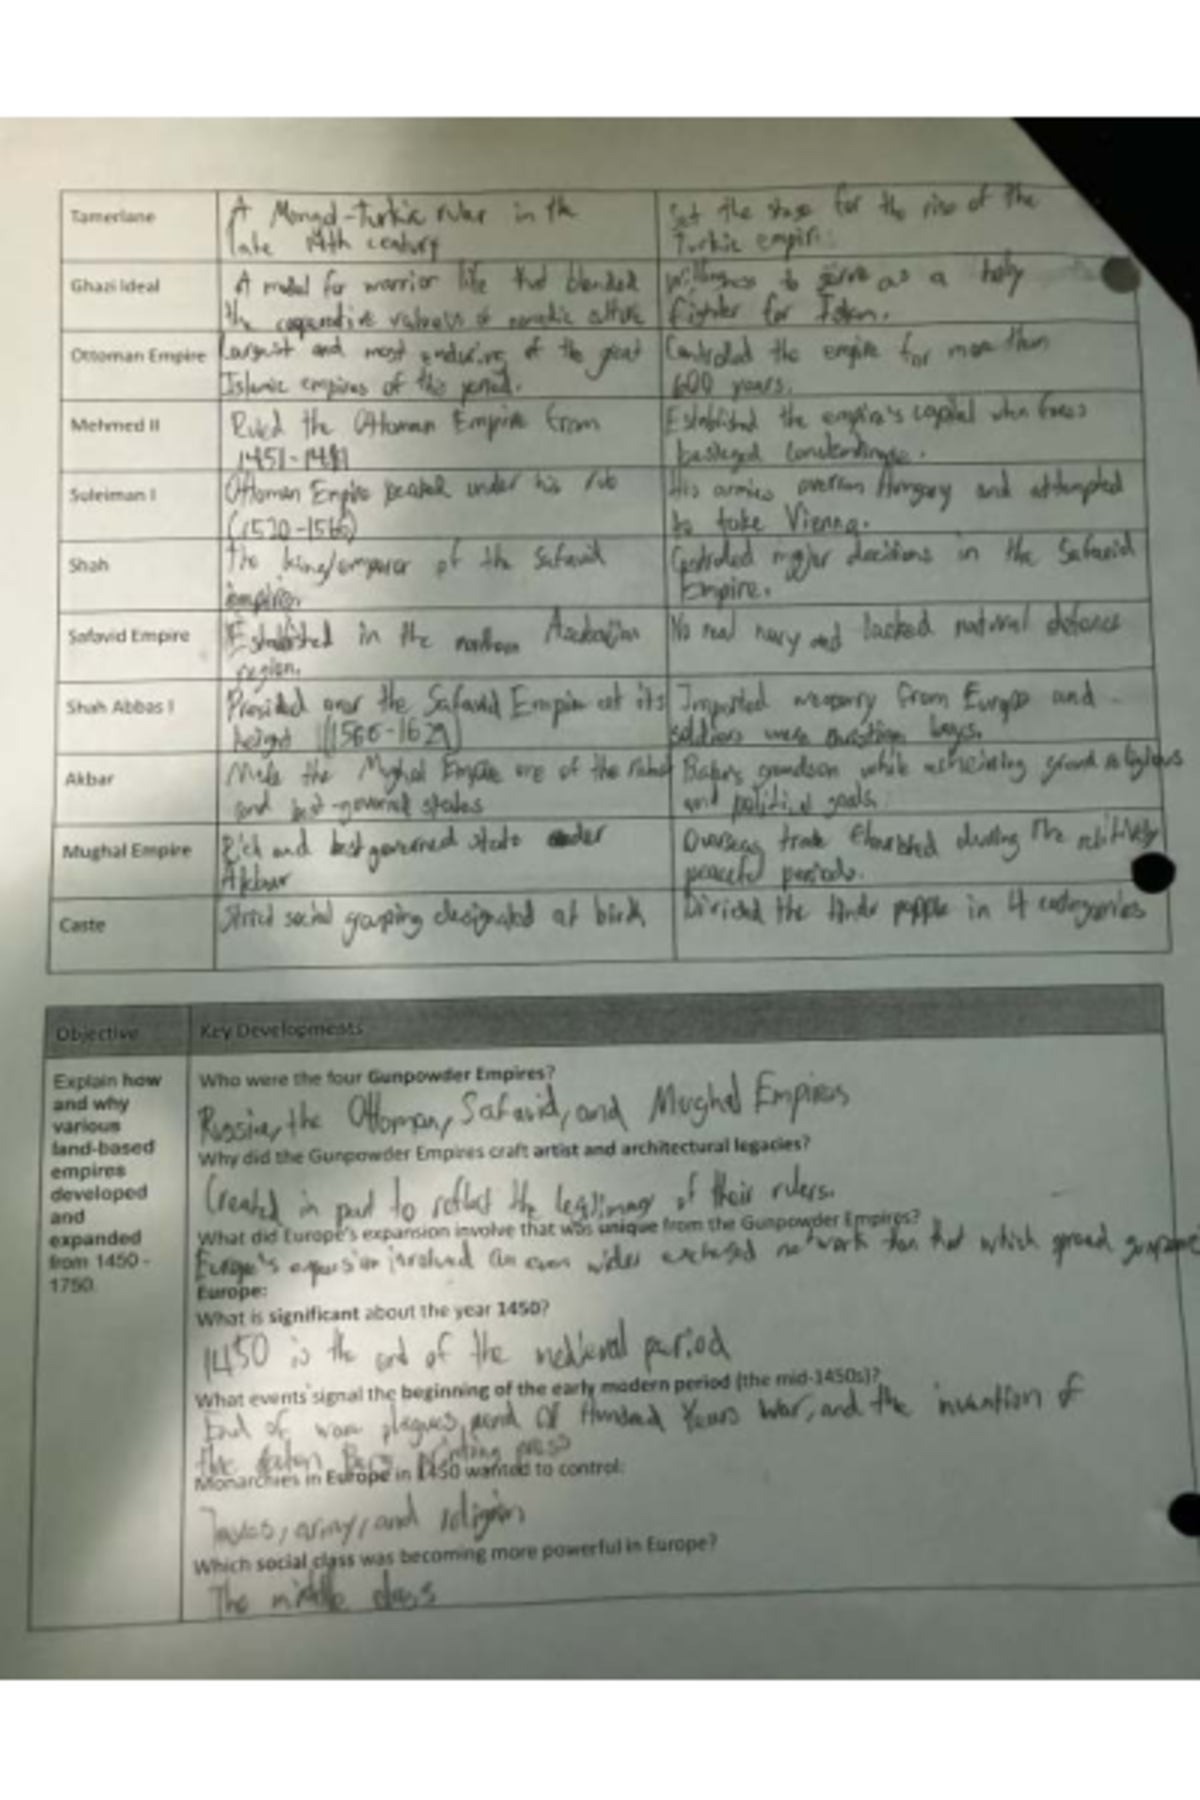 Tamerlane
A Mongol-Turkic ruler in the
late 14th century
Set the stage for the rise of the
Turkic empire.
Ghazi Ideal
A model for warrior life that blended
the cooperative values of nomadic culture
willingness to serve as a holy
fighter for Islam.
Ottoman Empire
Largest and most enduring of the great
Islamic empires of this period.
Controlled the empire for more than
600 years.
Mehmed II
Ruled the Ottoman Empire from
1451-1481
Established the empire's capital when forces
besieged
Suleiman I
Ottoman Empire peaked under his rule
(1520-1566)
His armies overran Hungary and attempted
to take Vienna.
Shah
The king/emperor of the Safavid
empire.
Controlled major decisions in the Safavid
Empire.
Safavid Empire
Established in the northern
region.
No real navy and lacked natural defense
Shah Abbas I
Presided over the Safavid Empire at its
height
Imported weaponry from Europe and
soldiers were boys.
Akbar
Made the Mughal Empire one of the richest
and best-governed states
Babur's grandson while achieving grand religious
and political goals.
Mughal Empire
Rich and best governed state under
Akbar
Overseas trade during the relitively
peaceful periods.
Caste
Strict social grouping designated at birth
Divided the Hindu people in 4 categories
Objective
Key Developments
Explain how
and why
various
land-based
empires
developed
and
expanded
from 1450 -
1750.
Who were the four Gunpowder Empires?
Russia, the Ottoman, Safavid, and Mughal Empires
Why did the Gunpowder Empires craft artist and architectural legacies?
Created in part to reflect the legitimacy of their rulers.
What did Europe's expansion involve that was unique from the Gunpowder Empires?
Europe's expansion involved an even wider network than that which spread
Europe:
What is significant about the year 1450?
1450 is the end of the medieval period
What events signal the beginning of the early modern period (the mid-1450s)?
End of plagues, end of Hundred Years War, and the invention of
the printing press
Monarchies in Europe in 1450 wanted to control:
Taxes, army, and religion
Which social class was becoming more powerful in Europe?
The middle class